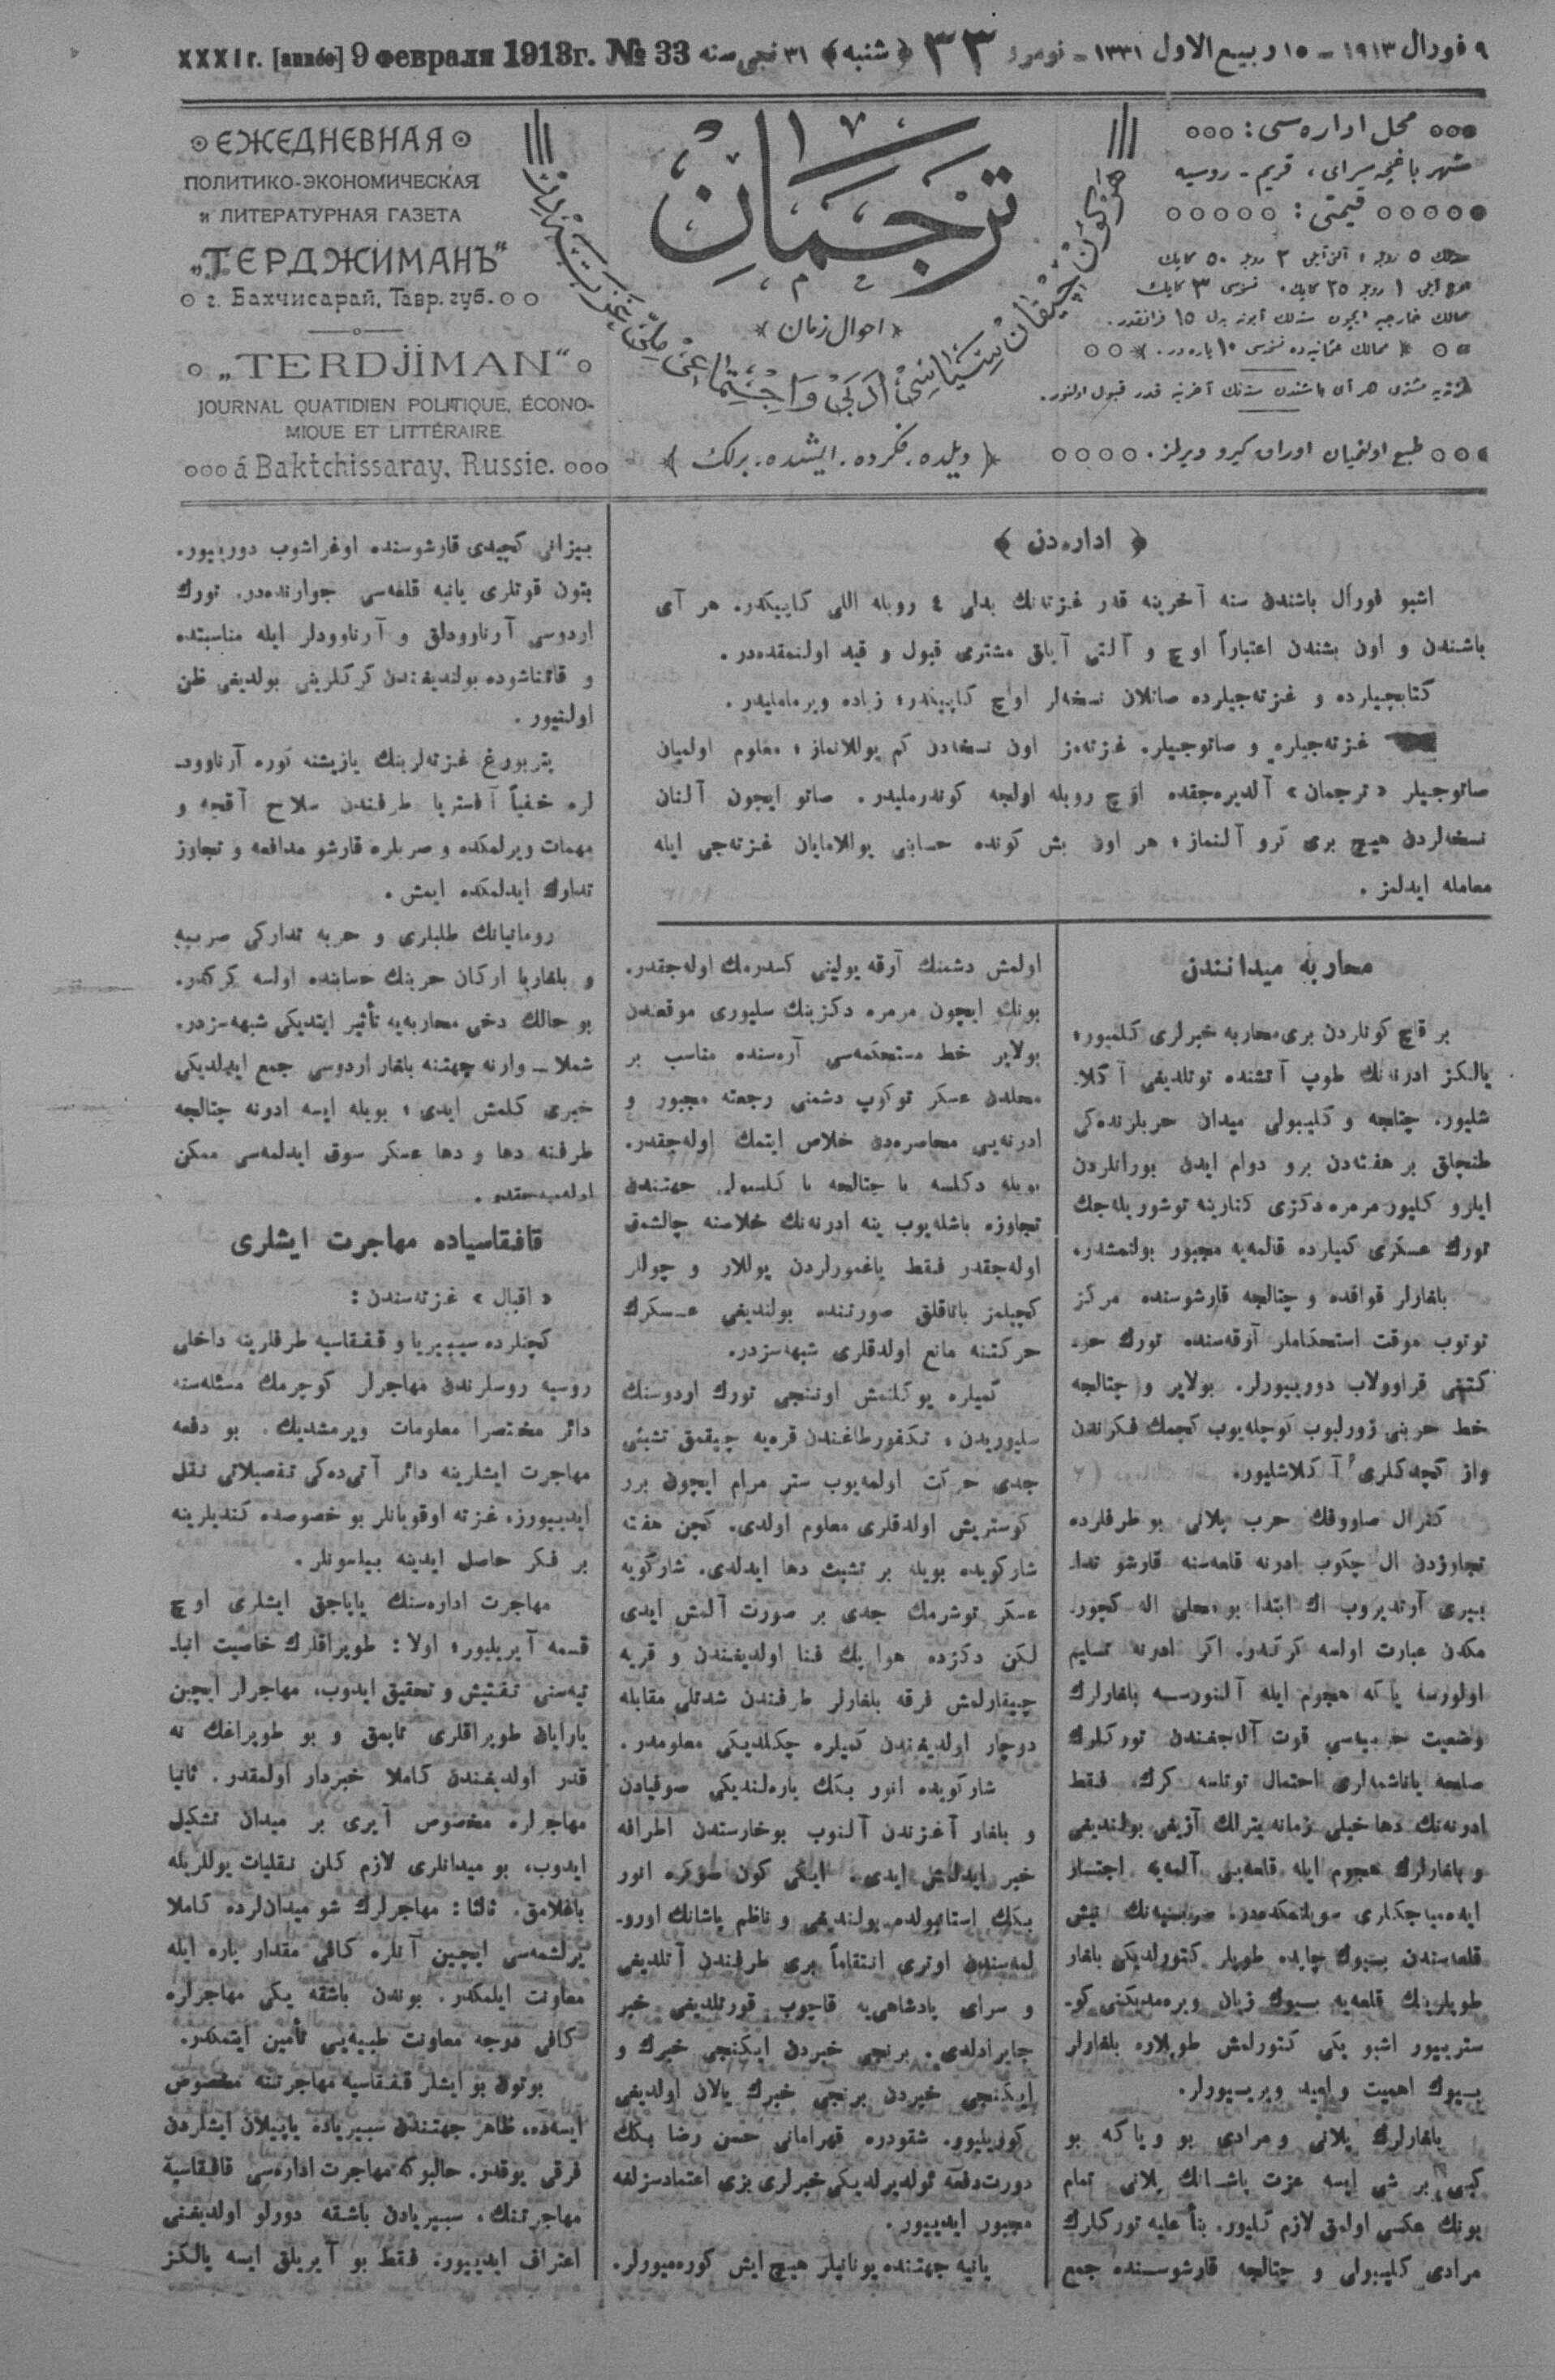 ٩ فورال ١٩١٣ – ١٥ ربيع الاول ١٣٣١ – نومرو ٣٣ ﴿شنبه﴾ ٣١ نجی سنه XXXI г. [année] 9 февраля 1913г. № 33
محل اداره‌سی:
شهر باغچه‌سرای، قریم - روسیه
قیمتی:
سنه‌لك ٥ روبله، آلتی آیلق ٣ روبله ٥٠ کاپك
اوچ آیلق ١ روبله ٢٥ کاپك. نسخه‌سی ٣ کاپك
ممالك خارجیه ایچون سنه‌لك آبونه بدلی ١٥ فرانقدر.
ممالك عثمانیه‌ده نسخه‌سی ١٠ پاره‌در.
طبع اولنمیان اوراق کیرو ویرلمز.
ترجمان
احوال زمان
﴿ دیلده، فکرده، ایشده، برلك ﴾
ЕЖЕДНЕВНАЯ
ПОЛИТИКО-ЭКОНОМИЧЕСКАЯ
и ЛИТЕРАТУРНАЯ ГАЗЕТА
„ТЕРДЖИМАНЪ“
г. Бахчисарай, Тавр. губ.
„TERDJIMAN“
JOURNAL QUATIDIEN POLITIQUE, ÉCONO-
MIQUE ET LITTÉRAIRE
á Baktchissaray, Russie.
﴿ اداره‌دن ﴾
اشبو فورال باشندن سنه آخرینه قدر غزته‌نك بدلی ٤ روبله اللی کاپیکدر. هر آی
باشندن و اون بشندن اعتباراً اوچ و آلتی آیلق مشتری قبول و قید اولنمقده‌در.
کتابجیلرده و غزته‌جیلرده صاتلان نسخه‌لر اوچ کاپیکدر؛ زیاده ویرماملیدر.
غزته‌جیلره و صاتوجیلره غزته‌مز اون نسخه‌دن کم یوللانماز؛ معلوم اولمیان
صاتوجیلر «ترجمان» آلدیره‌جقده اوچ روبله اولجه کوندرملیدر. صاتو ایچون آلنان
نسخه‌لردن هیچ بری کرو آلنماز؛ هر اون بش کونده حسابی یوللامایان غزته‌جی ایله
معامله ایدلمز.
محاربه میدانندن
بر قاچ کونلردن بری محاربه خبرلری کلمیور؛
یالکز ادرنه‌نك طوپ آتشنده توتلدیغی آکلا-
شلیور. چتالجه و کلیبولی میدان حربلرنده‌کی
طنجلق بر هفته‌دن برو دوام ایدن بورانلردن
ایلرو کلیور مرمره دکزی کنارینه توشوریله‌جك
تورك عسکری کمیلرده قالمه‌یه مجبور بولنمشدر.
بلغارلر قوافده و چتالجه قارشوسنده مرکز
توتوب موقت استحکاملر آرقه‌سنده تورك حر-
کتنی قراوولاب دوریبورلر. بولایر و چتالجه
خط حربنی زورلیوب کوچله‌یوب کچمك فکرندن
واز کچدکلری آکلاشلیور.
کنرال صاووفك حرب پلانی بو طرفلرده
تجاوزدن ال چکوب ادرنه قلعه‌سنه قارشو تدا-
بیری آرتدیروب اك ابتدا بو محلی اله کچور-
مکدن عبارت اولسه کرکدر. اکر ادرنه تسلیم
اولورسه یاکه هجوم ایله آلنورسه بلغارلرك
وضعیت حربیه‌سی قوت آلاجغندن تورکلرك
صلحه یاناشمه‌لری احتمال توتلسه کرك. فقط
ادرنه‌نك دها خیلی زمانه یترلك آزیغی بولندیغی
و بلغارلرك هجوم ایله قلعه‌یی آلمه‌یه اجتسار
ایده‌میه‌جکلری سویلنمکده‌در. صربیه‌نك نیش
قلعه‌سندن بیوك چابده طوپلر کتورلدیکی بلغار
طوپلرینك قلعه‌یه بیوك زیان ویره‌مدیکنی کو-
ستریبور اشبو یکی کتورلمش طوپلاره بلغارلر
بیوك اهمیت و امید ویریبورلر.
بلغارلرك پلانی و مرادی بو ویاکه بو
کبی بر شی ایسه عزت پاشانك پلانی تمام
بونك عکسی اولمق لازم کلیور. بناً علیه تورکلرك
مرادی کلیبولی و چتالجه قارشوسنده جمع
اولمش دشمنك آرقه یولینی کسدرمك اوله‌جقدر.
بونك ایچون مرمره دکزینك سلیوری موقعندن
بولایر خط مستحکمه‌سی آره‌سنده مناسب بر
محلدن عسکر توکوب دشمنی رجعته مجبور و
ادرنه‌یی محاصره‌دن خلاص ایتمك اوله‌جقدر.
بویله دکلسه یا چتالجه یا کلیبولی جهتندن
تجاوزه باشله‌یوب ینه ادرنه‌نك خلاصنه چالشمق
اوله‌جقدر فقط یاغمورلردن یوللار و چوللر
کچیلمز باتاقلق صورتنده بولندیغی عسکرك
حرکتنه مانع اولدقلری شبهه‌سزدر.
کمیلره یوکلنمش اوننجی تورك اردوسنك
سلیوریدن، تکفورطاغندن قره‌یه چیقمق تشبثی
جدی حرکت اولمه‌یوب ستر مرام ایچون برر
کوستریش اولدقلری معلوم اولدی. کچن هفته
شارکویده بویله بر تشبث دها ایدلدی. شارکویه
عسکر توشرمك جدی بر صورت آلمش ایدی
لکن دکزده هوا پك فنا اولدیغندن و قریه
چیقارلمش فرقه بلغارلر طرفندن شدتلی مقابله
دوچار اولدیغندن کمیلره چکلدیکی معلومدر.
شارکویده انور بکك یاره‌لندیکی صوفیادن
و بلغار آغزندن آلنوب بوخارستدن اطرافه
خبر ایدلمش ایدی. ایکی کون صوکره انور
بکك استانبولده بولندیغی و ناظم پاشانك اورو-
لمه‌سندن اوتری انتقاماً بری طرفندن آتلدیغی
و سرای پادشاهی‌یه قاچوب قورتلدیغی خبر
. برنجی خبردن ایکنجی خبرك و
ایکنجی خبردن برنجی خبرك یالان اولدیغی
کورلیور. شقودره قهرامانی حسن رضا بکك
دورت دفعه ئولدیرلدیکی خبرلری بزی اعتمادسزلغه
مجبور ایدیبور.
یانیه جهتنده یونانیلر هیچ ایش کوره‌میورلر.
بیزانی کچیدی قارشوسنده اوغراشوب دوریبور.
بتون قوتلری یانیه قلعه‌سی جوارنده‌در. تورك
اردوسی آرناوودلق و آرناوودلر ایله مناسبتده
و قاتناشوده بولندیغندن کرکلریغی بولدیغی ظن
اولنیور.
پتربورغ غزته‌لرینك یازیشنه کوره آرناوود-
لره خفیاً آوستریا طرفندن سلاح آقچه و
مهمات ویرلمکده و صربلره قارشو مدافعه و تجاوز
تدارك ایدلمکده ایمش.
رومانیانك طلبلری و حربه تدارکی صربیه
و بلغاریا ارکان حربنك حسابنده اولسه کرکدر.
بو حالك دخی محاربه‌یه تأثیر ایتدیکی شبهه‌سزدر.
شملا – وارنه جهتنه بلغار اردوسی جمع ایدلدیکی
خبری کلمش ایدی؛ بویله ایسه ادرنه چتالجه
طرفنه دها و دها عسکر سوق ایدلمه‌سی ممکن
اوله‌میه‌جقدر.
قافقاسیاده مهاجرت ایشلری
«اقبال» غزته‌سندن:
کچنلرده سیبیریا و قفقاسیه طرفلرینه داخلی
روسیه روسلرندن مهاجرلر کوچرمك مسئله‌سنه
دائر مختصرا معلومات ویرمشدیك. بو دفعه
مهاجرت ایشلرینه دائر آتی‌ده‌کی تفصیلاتی نقل
ایدیبورز. غزته اوقویانلر بو خصوصده کندیلرینه
بر فکر حاصل ایدینه بیلسونلر.
مهاجرت اداره‌سنك یاپاجق ایشلری اوچ
قسمه آیریلیور؛ اولا: طوپراقلرك خاصیت انبا-
تیه‌سنی تفتیش و تحقیق ایدوب، مهاجرلر ایچین
یارایان طوپراقلری تاپمق و بو طوپراغك نه
قدر اولدیغندن کاملا خبردار اولمقدر. ثانیا
مهاجرلره مخصوص آیری بر میدان تشکیل
ایدوب، بو میدانلری لازم کلن نقلیات یوللریله
باغلامق. ثالثا: مهاجرلرك شو میدانلرده کاملا
یرلشمه‌سی ایچین آنلره کافی مقدار پاره ایله
معاونت ایلمکدر. بوندن باشقه یکی مهاجرلره
کافی درجه معاونت طبیه‌یی تأمین ایتمکدر.
بوتون بو ایشلر قفقاسیه مهاجرتنه مخصوص
ایسه‌ده، ظاهر جهتندن سیبریاده یاپیلان ایشلردن
فرقی یوقدر. حالبوکه مهاجرت اداره‌سی قافقاسیه
مهاجرتنك، سیبریادن باشقه دورلو اولدیغنی
اعتراف ایدیبور. فقط بو آیریلق ایسه یالکز